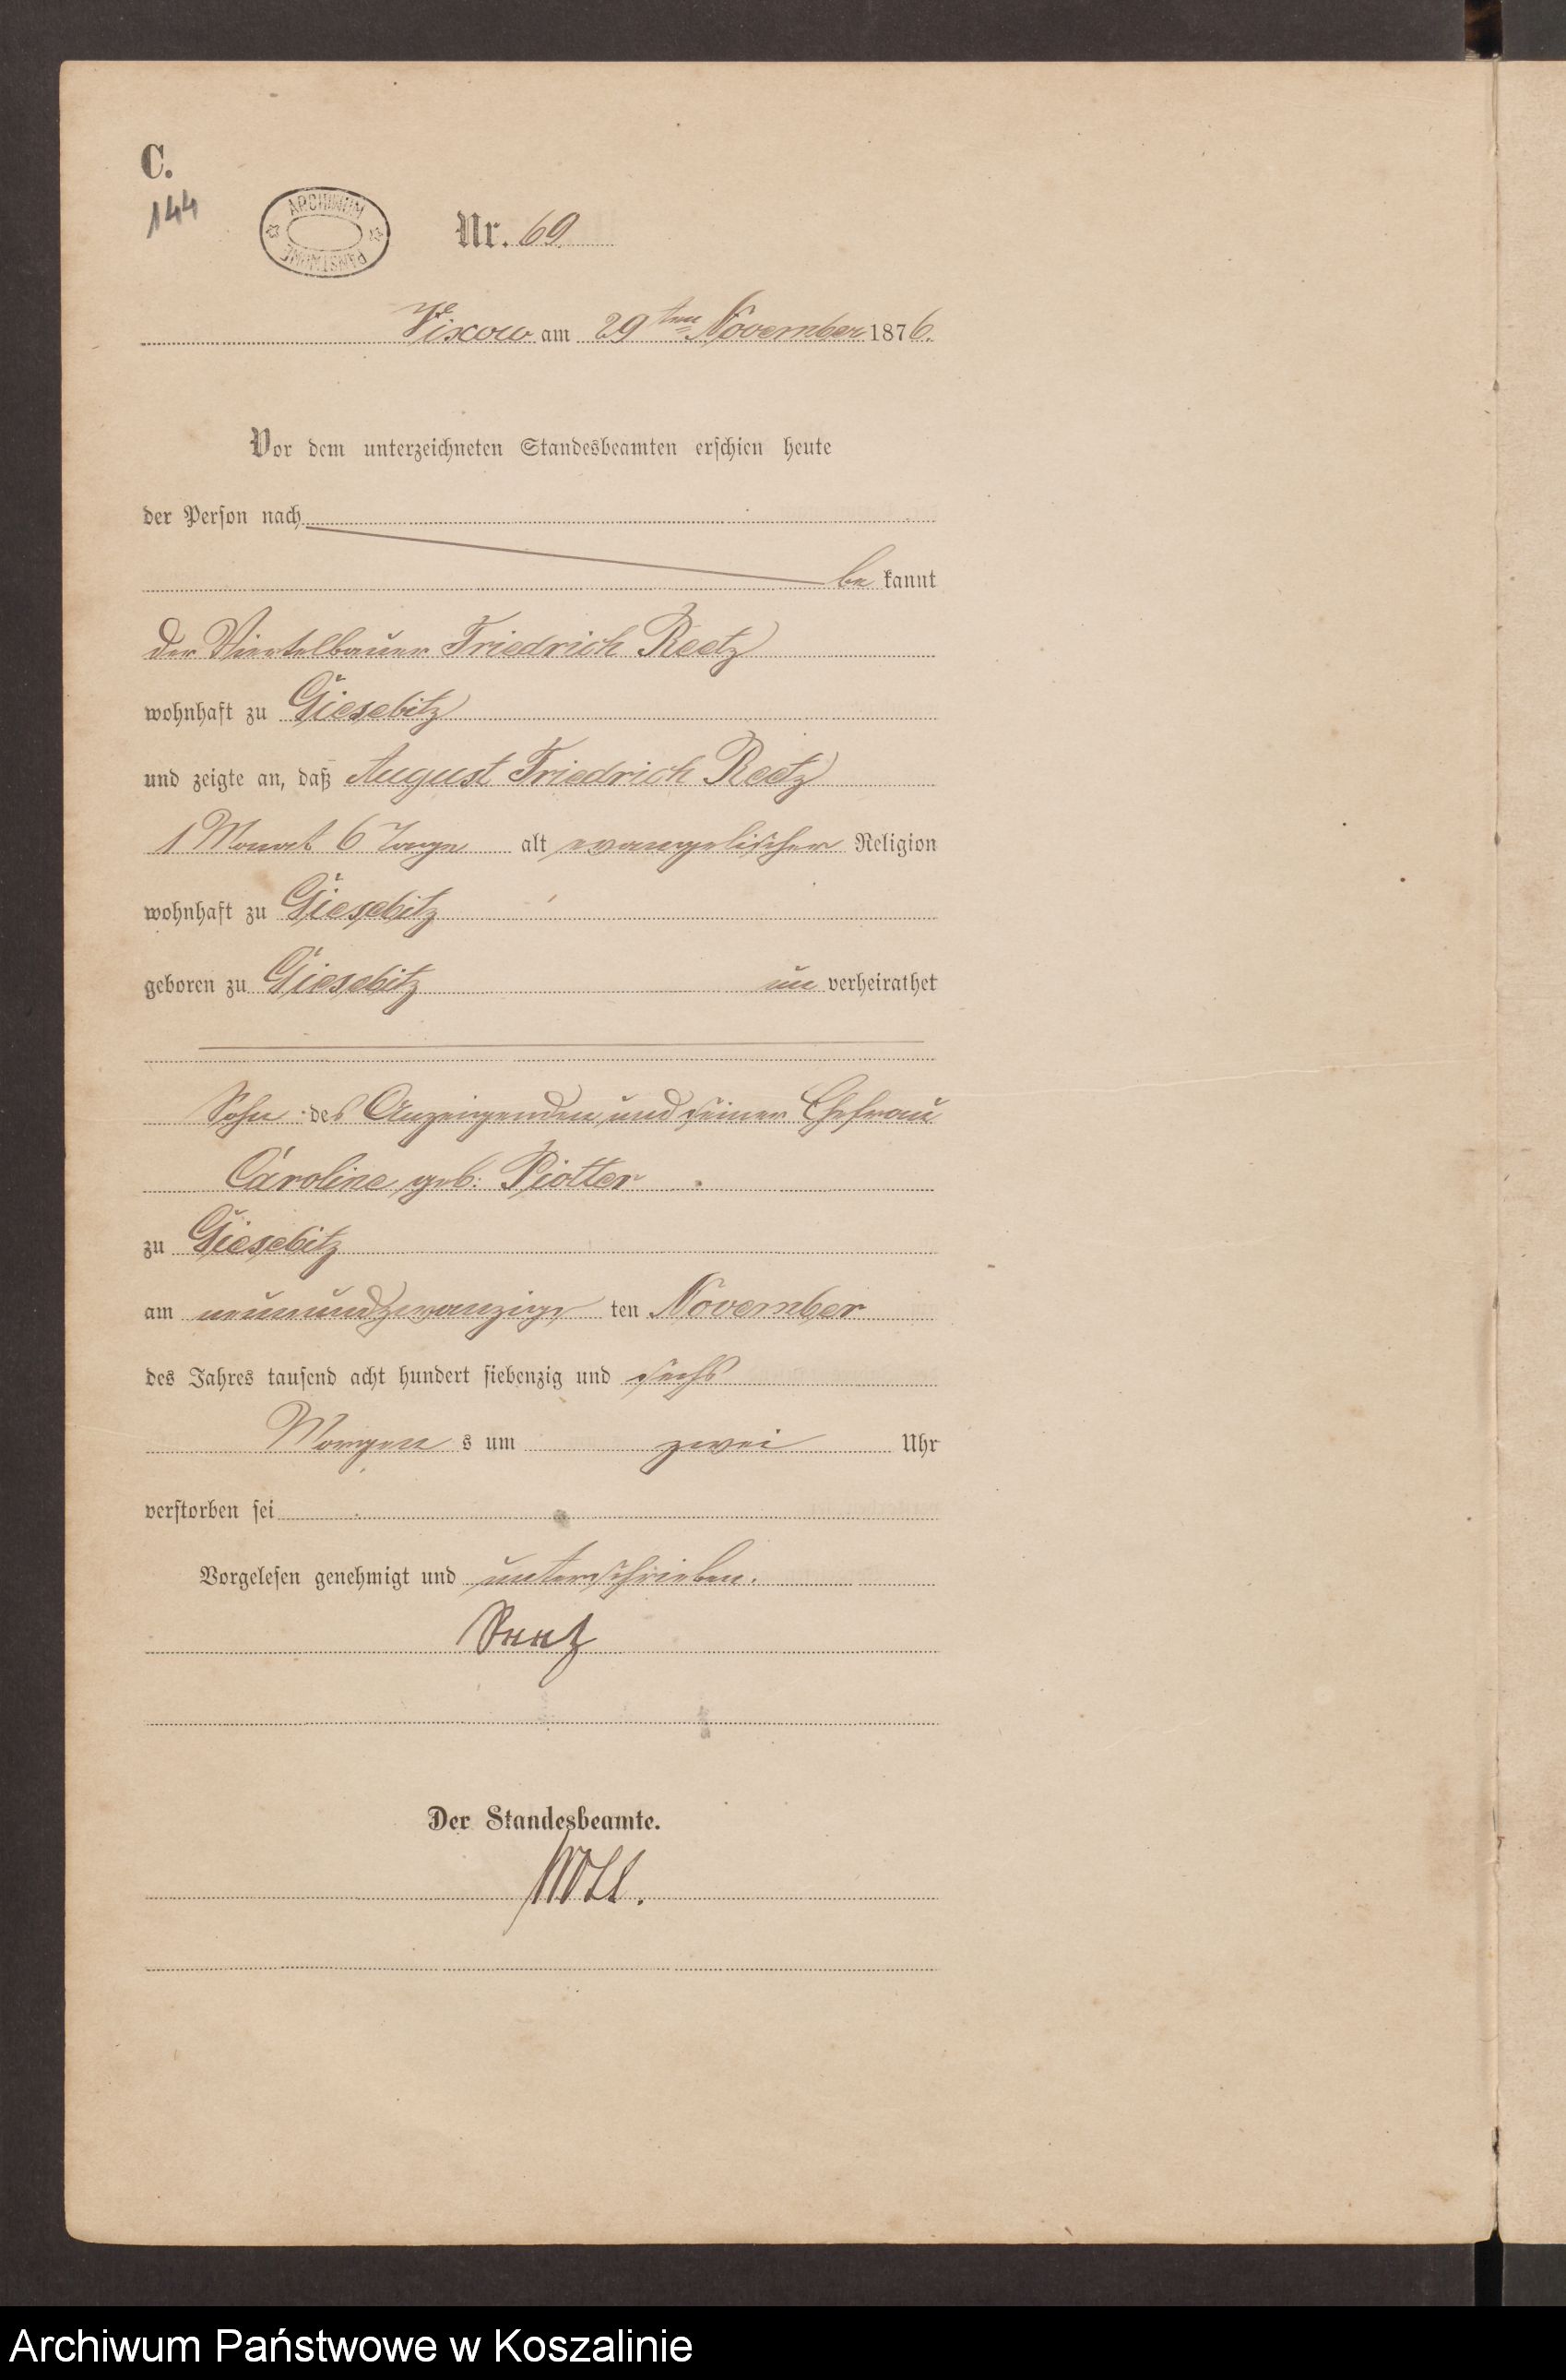 C.
144
ARCHIWUM
PAŃSTWOWE
Nr. 69.
Vixow am 29ten November 1876.
Vor dem unterzeichneten Standesbeamten erschien heute
der Person nach
be kannt
der Viertelbauer Friedrich Reetz
wohnhaft zu Giesebitz
und zeigte an, daß August Friedrich Reetz
1 Monat 6 Tage alt evangelischer Religion
wohnhaft zu Giesebitz
geboren zu Giesebitz un verheirathet
Sohn des Anzeigenden und seiner Ehefrau
Caroline geb: Piotter
zu Giesebitz
am neunundzwanzig ten November
des Jahres tausend acht hundert siebenzig und sechs
Morgen s um zwei Uhr
verstorben sei
Vorgelesen genehmigt und unterschrieben.
Reetz
Der Standesbeamte.
Archiwum Państwowe w Koszalinie